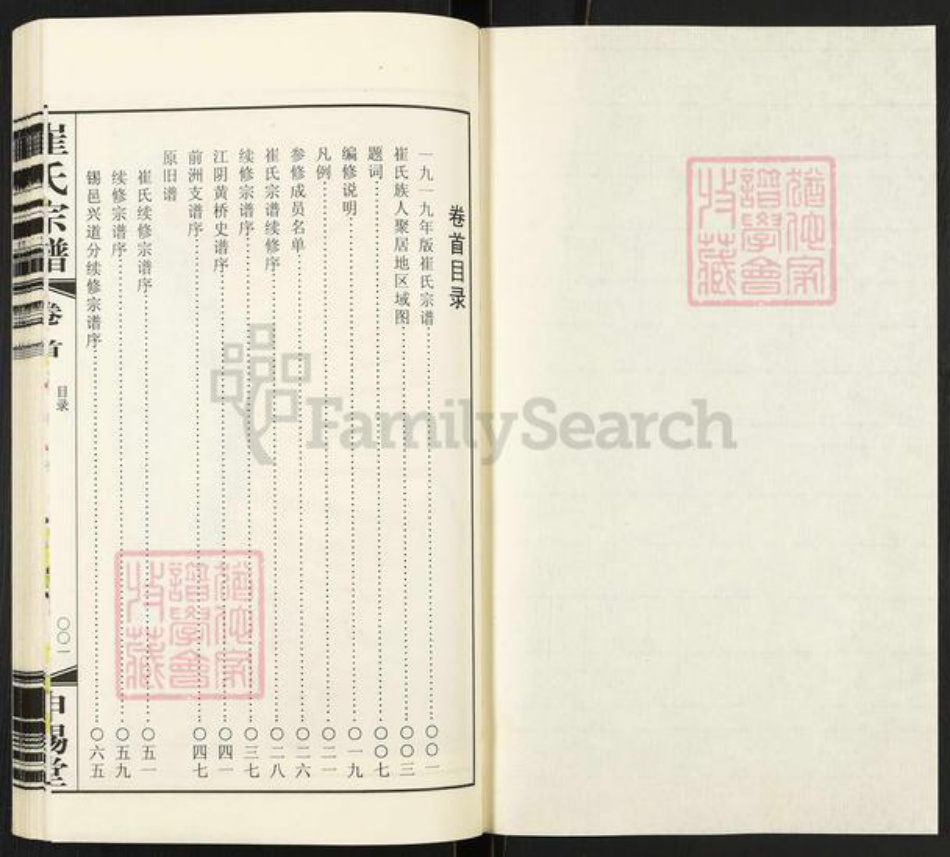 卷首目录
一九一九年版崔氏宗谱……〇〇一
崔氏族人聚居地区域图……〇〇三
题词……〇〇七
编修说明……〇一九
凡例……〇二一
参修成员名单……〇二六
崔氏宗谱续修序……〇二八
续修宗谱序……〇三七
江阴黄桥史谱序……〇四一
前洲支谱序……〇四七
原旧谱
崔氏续修宗谱序……〇五一
续修宗谱序……〇五九
锡邑兴道分续修宗谱序……〇六五
崔氏宗谱
卷首
目录
〇〇一
申锡堂
FamilySearch
猶他家
譜學會
收藏
猶他家
譜學會
收藏